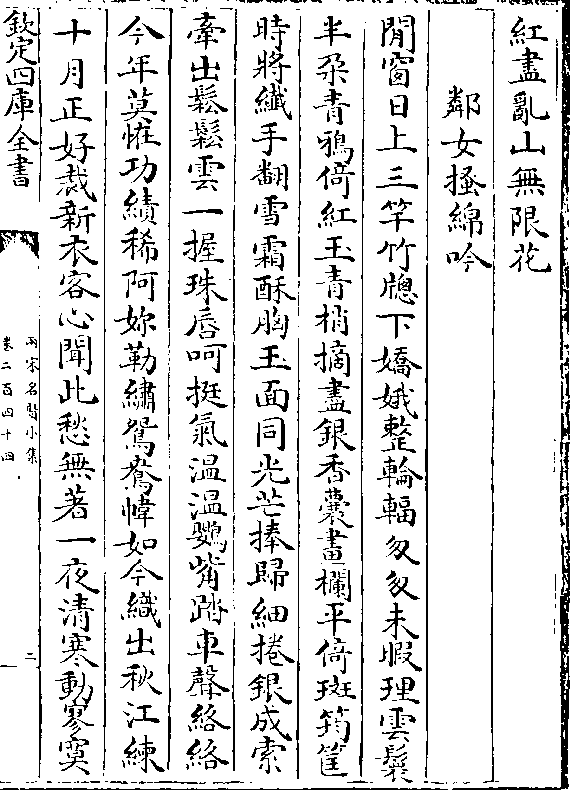 紅盡亂山無限花
鄰女搔綿吟
閒窗日上三竿竹牕下嬌娥整輪輻匆匆未暇理雲鬟
半朶青鴉倚紅玉青梢摘盡銀香囊畫欄平倚斑筠筐
時將纖手翻雪霜酥胸玉面同光芒捧歸細捲銀成索
牽出鬆鬆雲一握珠唇呵挺氣溫溫鸚觜踏車聲絡絡
今年莫恠功績稀阿妳勒繡鴛鴦幃如今織出秋江練
十月正好裁新衣客心聞此愁無著一夜清寒動寥寞
欽定四庫全書
兩宋名賢小集
卷二百四十四
三